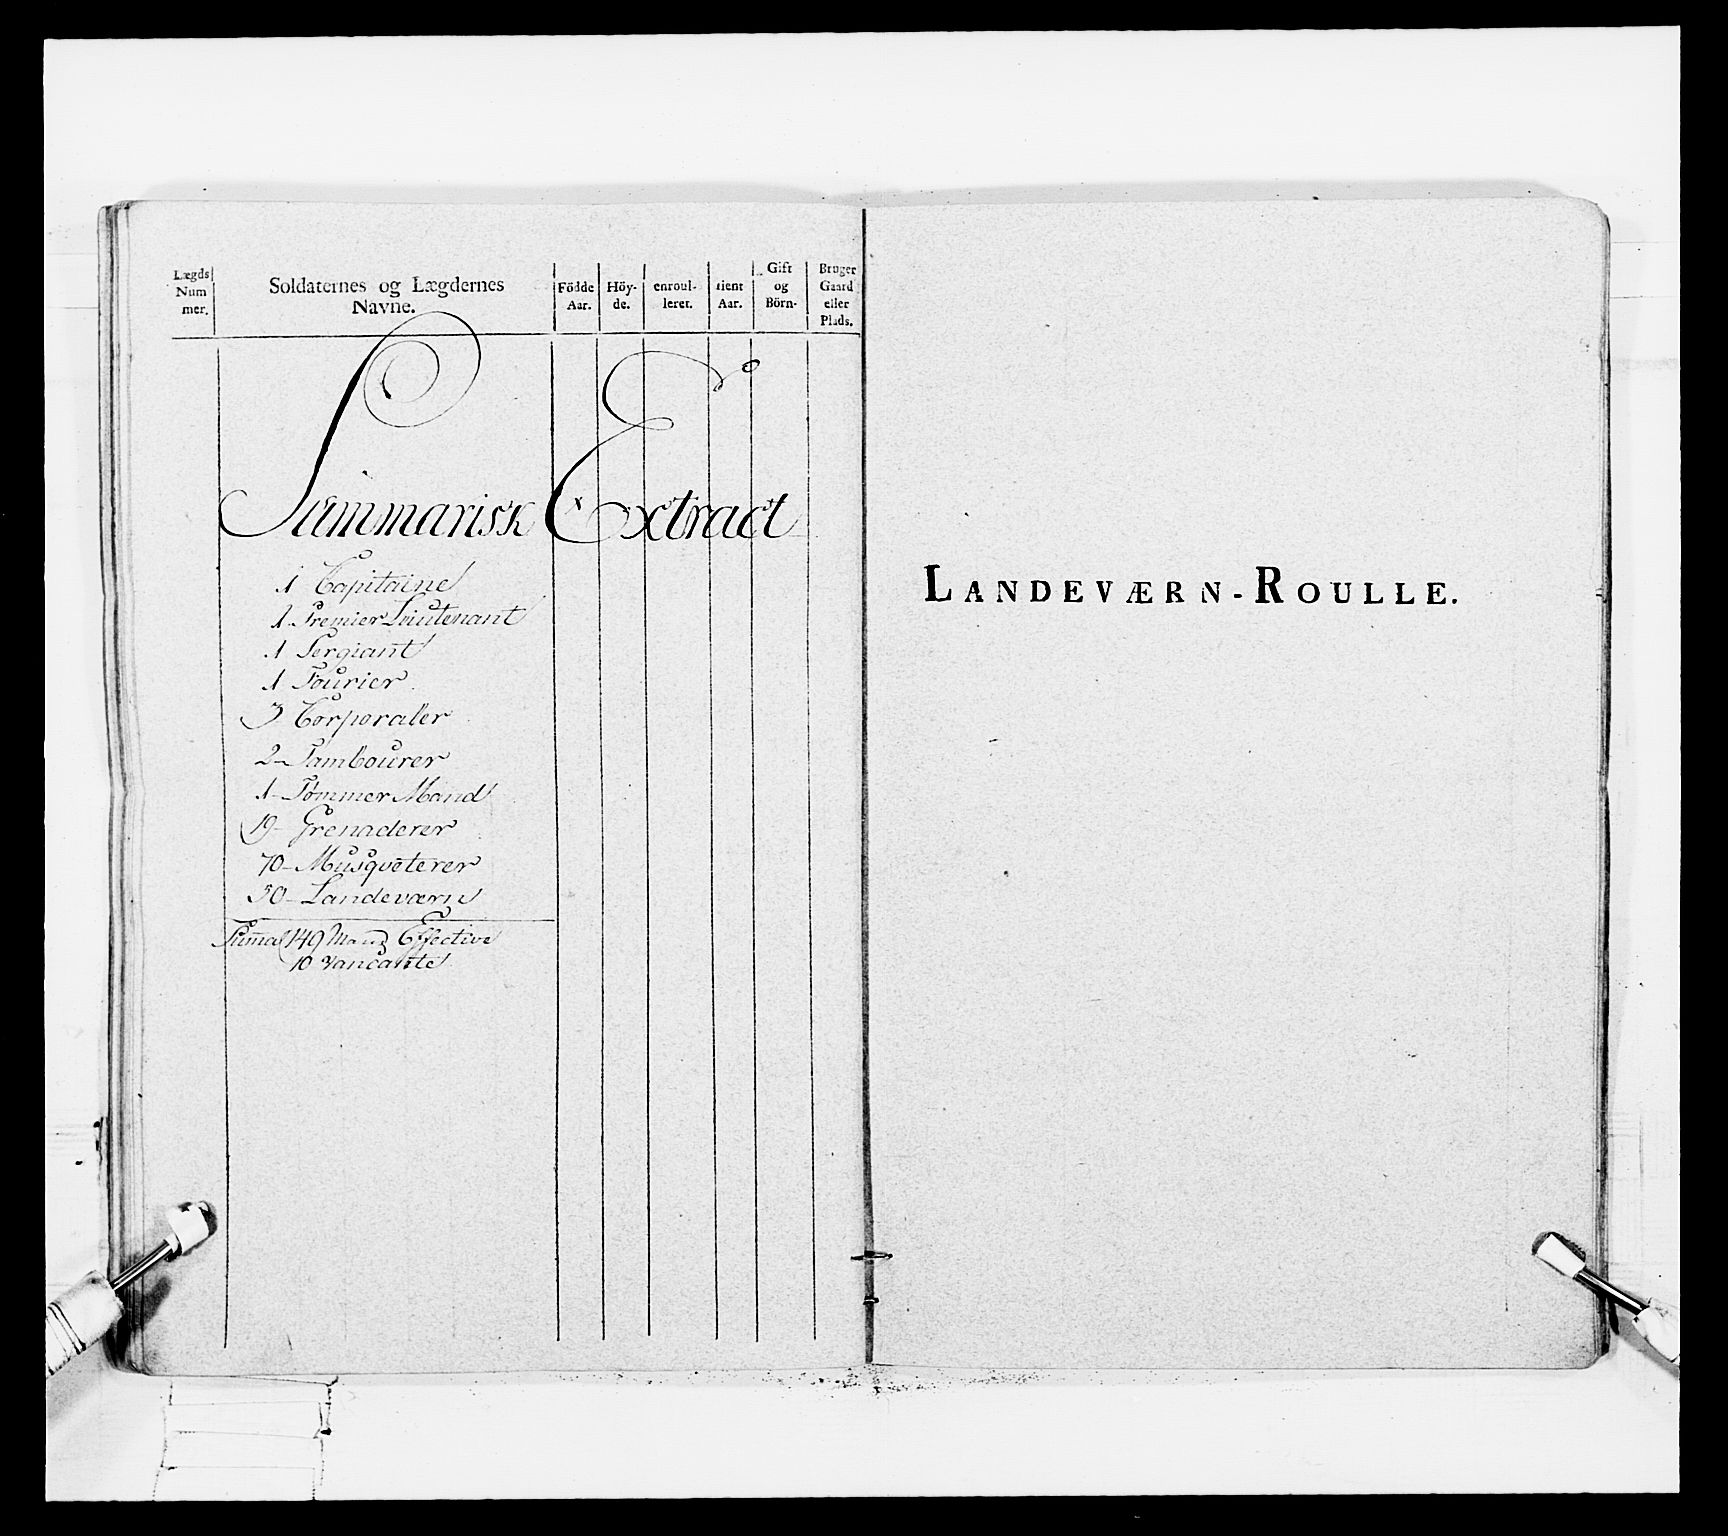 Lægds Num mer.
Soldaternes og Lægdernes Navne.
Födde Aar.
Höy- de.
enroul- leret.
tient Aar.
Gift og Börn.
Bruger Gaard eller Plads.
Summarisk Extract
1 Capitaine
1 Premier Lieutenant
1 Sergiant
1 Fourier
3 Corporaler
2 Tambourer
1 Tömmer Mand
19 Grenaderer
70 Musqveterer
50 Landeværn
Suma 149 Mand Effective
10 vancante
LANDEVÆRN-ROULLE.